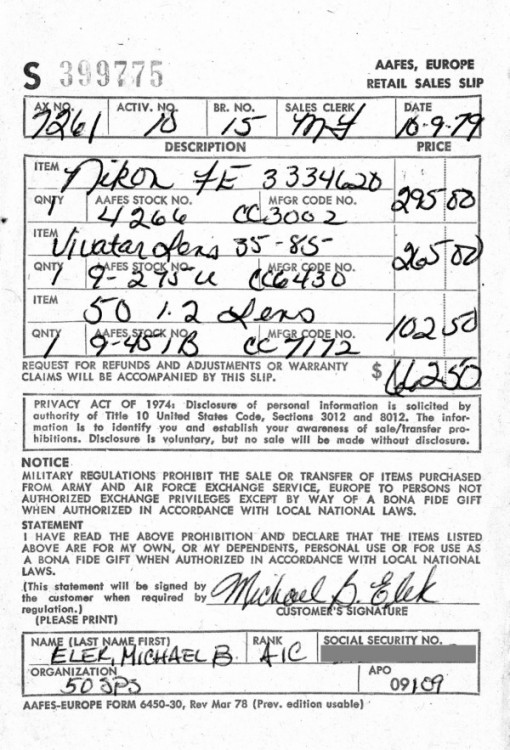 S 399775
AAFES, EUROPE
RETAIL SALES SLIP
AX NO. ACTIV. NO. BR. NO. SALES CLERK DATE
7261 10 15 MY 10-9-79
DESCRIPTION PRICE
ITEM Nikon FE 3334620 295 00
QNTY AAFES STOCK NO. MFGR CODE NO.
1 4266 CC3002
ITEM Vivatar Lens 35-85- 265 00
QNTY AAFES STOCK NO. MFGR CODE NO.
1 9-275-U CC6430
ITEM 50 1.2 Lens 102 50
QNTY AAFES STOCK NO. MFGR CODE NO.
1 9-451B CC7172
REQUEST FOR REFUNDS AND ADJUSTMENTS OR WARRANTY
CLAIMS WILL BE ACCOMPANIED BY THIS SLIP.
$ 662 50
PRIVACY ACT OF 1974: Disclosure of personal information is solicited by
authority of Title 10 United States Code, Sections 3012 and 8012. The infor-
mation is to identify you and establish your awareness of sale/transfer pro-
hibitions. Disclosure is voluntary, but no sale will be made without disclosure.
NOTICE
MILITARY REGULATIONS PROHIBIT THE SALE OR TRANSFER OF ITEMS PURCHASED
FROM ARMY AND AIR FORCE EXCHANGE SERVICE, EUROPE TO PERSONS NOT
AUTHORIZED EXCHANGE PRIVILEGES EXCEPT BY WAY OF A BONA FIDE GIFT
WHEN AUTHORIZED IN ACCORDANCE WITH LOCAL NATIONAL LAWS.
STATEMENT
I HAVE READ THE ABOVE PROHIBITION AND DECLARE THAT THE ITEMS LISTED
ABOVE ARE FOR MY OWN, OR MY DEPENDENTS, PERSONAL USE OR FOR USE AS
A BONA FIDE GIFT WHEN AUTHORIZED IN ACCORDANCE WITH LOCAL NATIONAL
LAWS.
(This statement will be signed by
the customer when required by
regulation.)
Michael B. Elek
CUSTOMER'S SIGNATURE
(PLEASE PRINT)
NAME (LAST NAME, FIRST) RANK SOCIAL SECURITY NO.
ELEK, MICHAEL B. A1C
ORGANIZATION APO
50 SPS 09109
AAFES-EUROPE FORM 6450-30, Rev Mar 78 (Prev. edition usable)